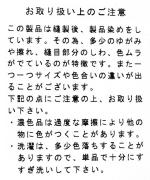 お取り扱い上のご注意
この製品は縫製後、製品染めをし
ています。その為、多少のゆがみ
や擦れ、縫目部分のしわ、色ムラ
がでているのが特徴です。また一
つ一つサイズや色合いの違いが出
ることがございます。
下記の点にご注意の上、お取り扱
い下さい。
・濃色品は過度な摩擦により他の
物に色がつくことがあります。
・洗濯は、多少色落ちすることが
ありますので、単品で十分にす
すぎ洗いして下さい。